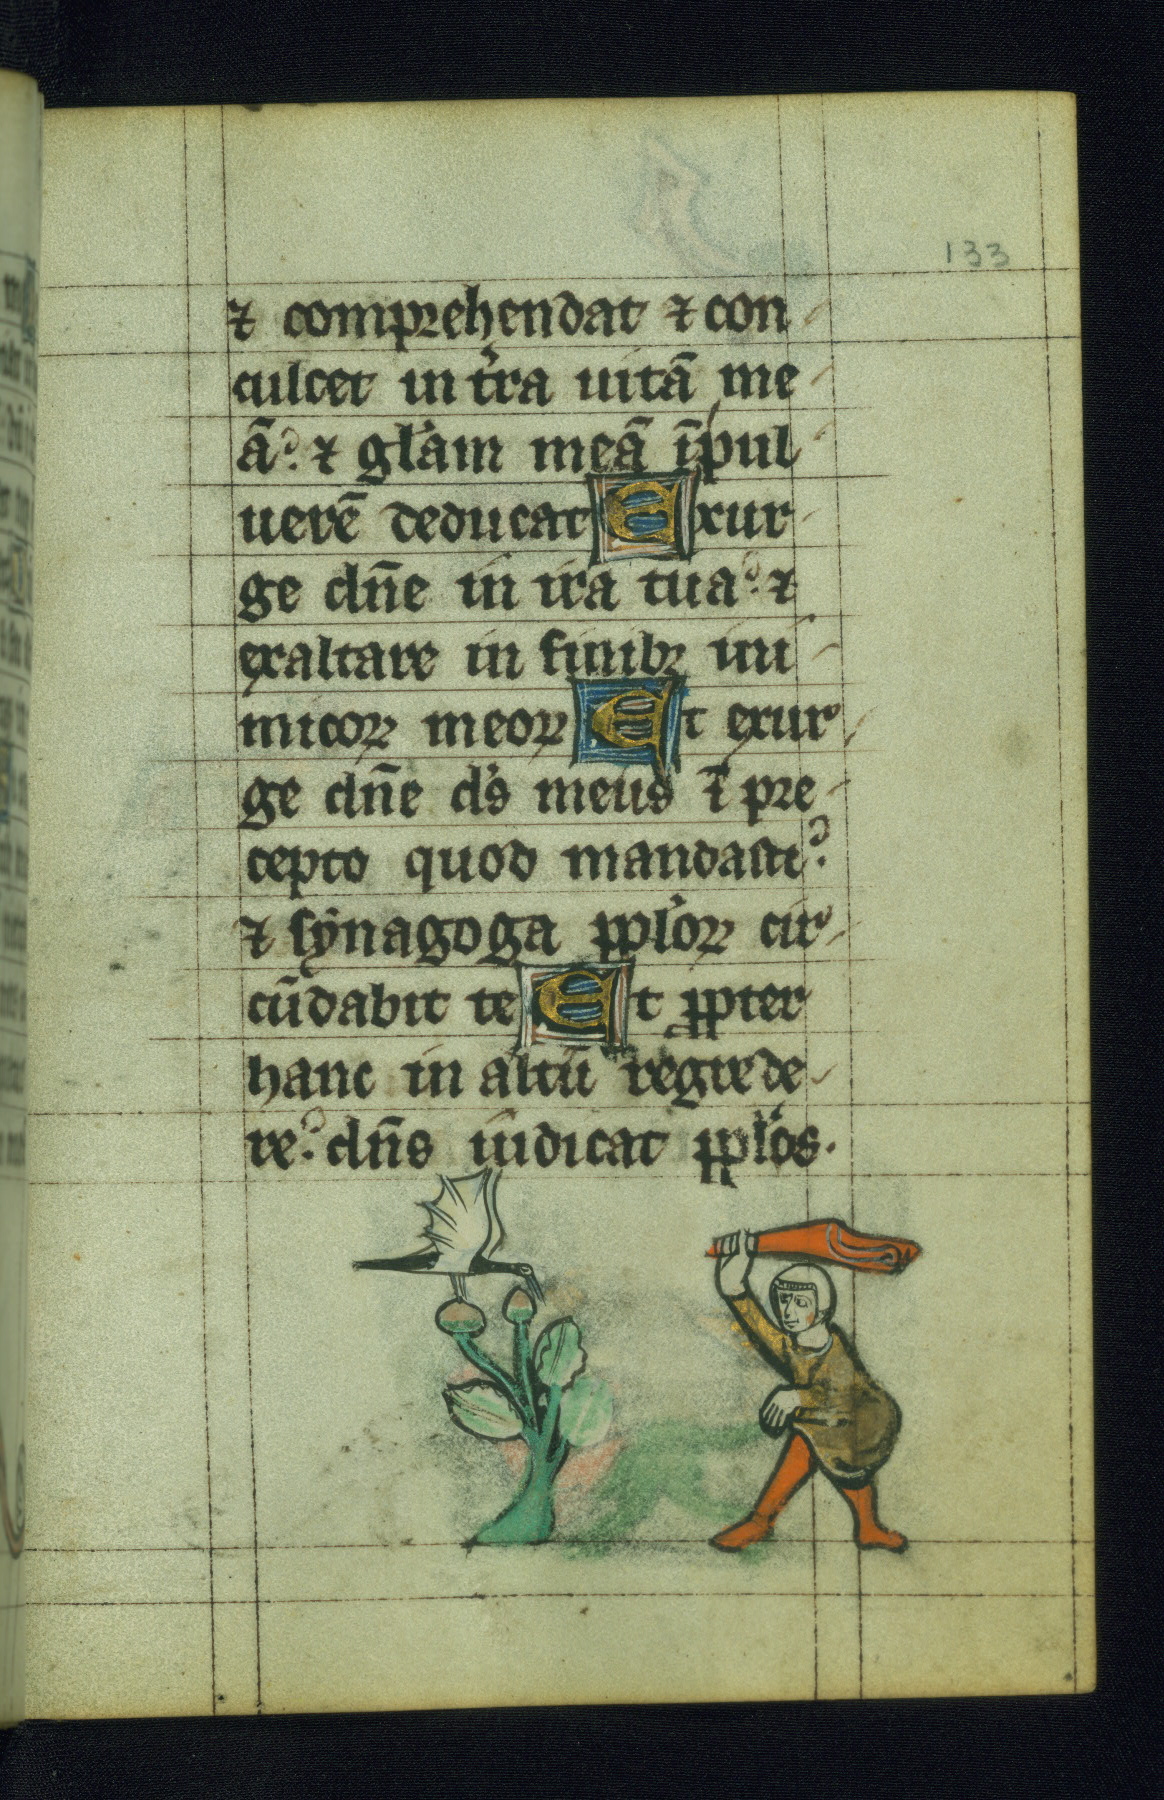 133
⁊ comprehendat ⁊ con
culcet in t̾ra uitā me
ā? ⁊ gl̾am meā ī pul
uerē deducat Exur
ge dn̄e in ira tua? ⁊
exaltare in finibꝫ ini
micoꝝ meoꝝ Et exur
ge dn̄e ds̾ meus ī pre
cepto quod mandasti?
⁊ synagoga ppl̾oꝝ cir
cūdabit te Et ꝓpter
hanc in altū regrede
re? dn̄s iudicat ppl̾os.